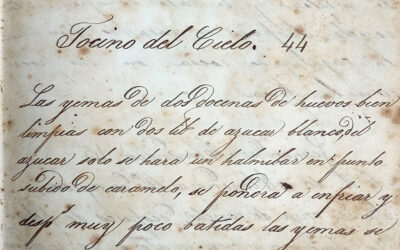 Tocino del Cielo. 44
Las yemas de dos docenas de huevos bien
limpias con dos lib de azucar blanco, del
azucar solo se hara un halmibar en punto
subido de caramelo, se pondra a enfriar y
desps muy poco batidas las yemas se